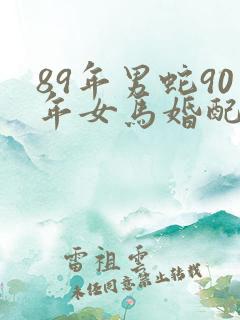 89年男蛇90
年女馬婚配
雷祖雲
未任同意禁止转载